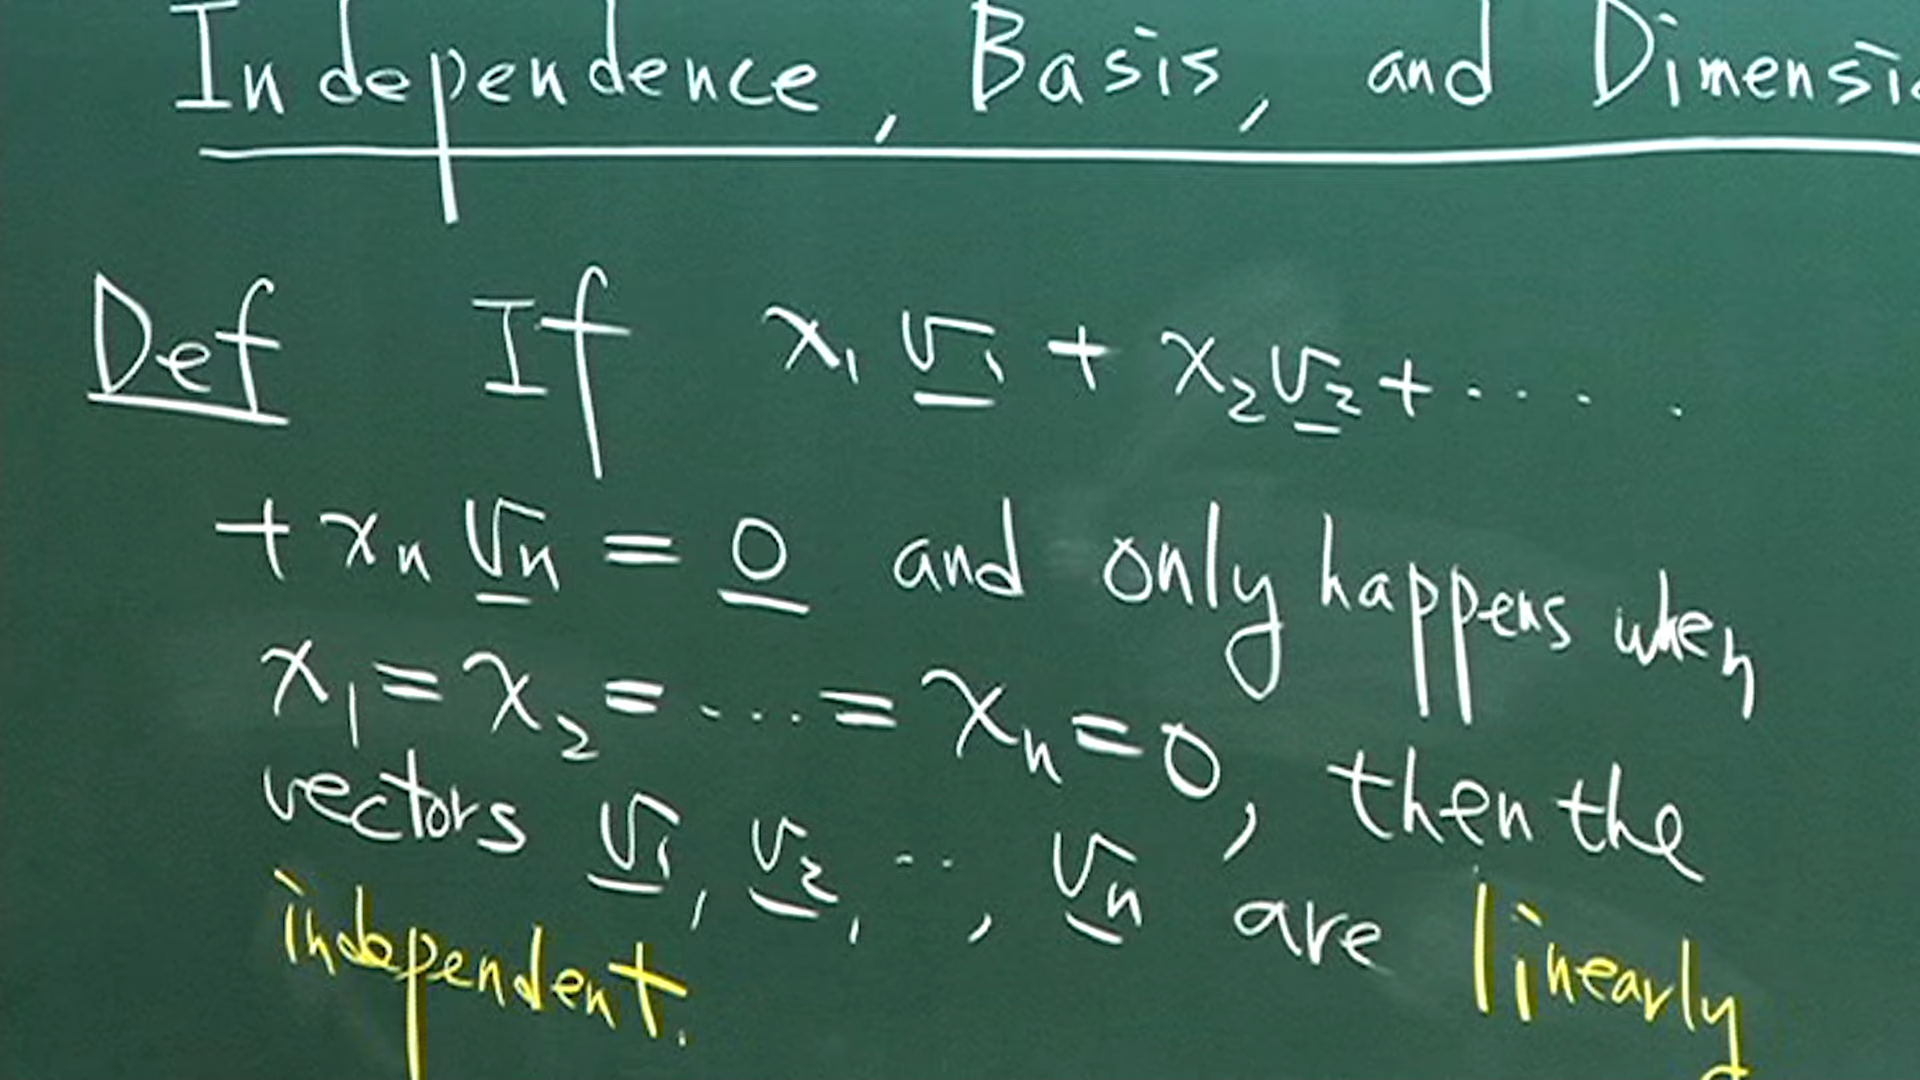 Independence, Basis, and Dimensio
Def If x₁ v₁ + x₂ v₂ + .....
+ xₙ vₙ = 0 and only happens when
x₁ = x₂ = ... = xₙ = 0, then the
vectors v₁, v₂, .., vₙ are linearly
independent.